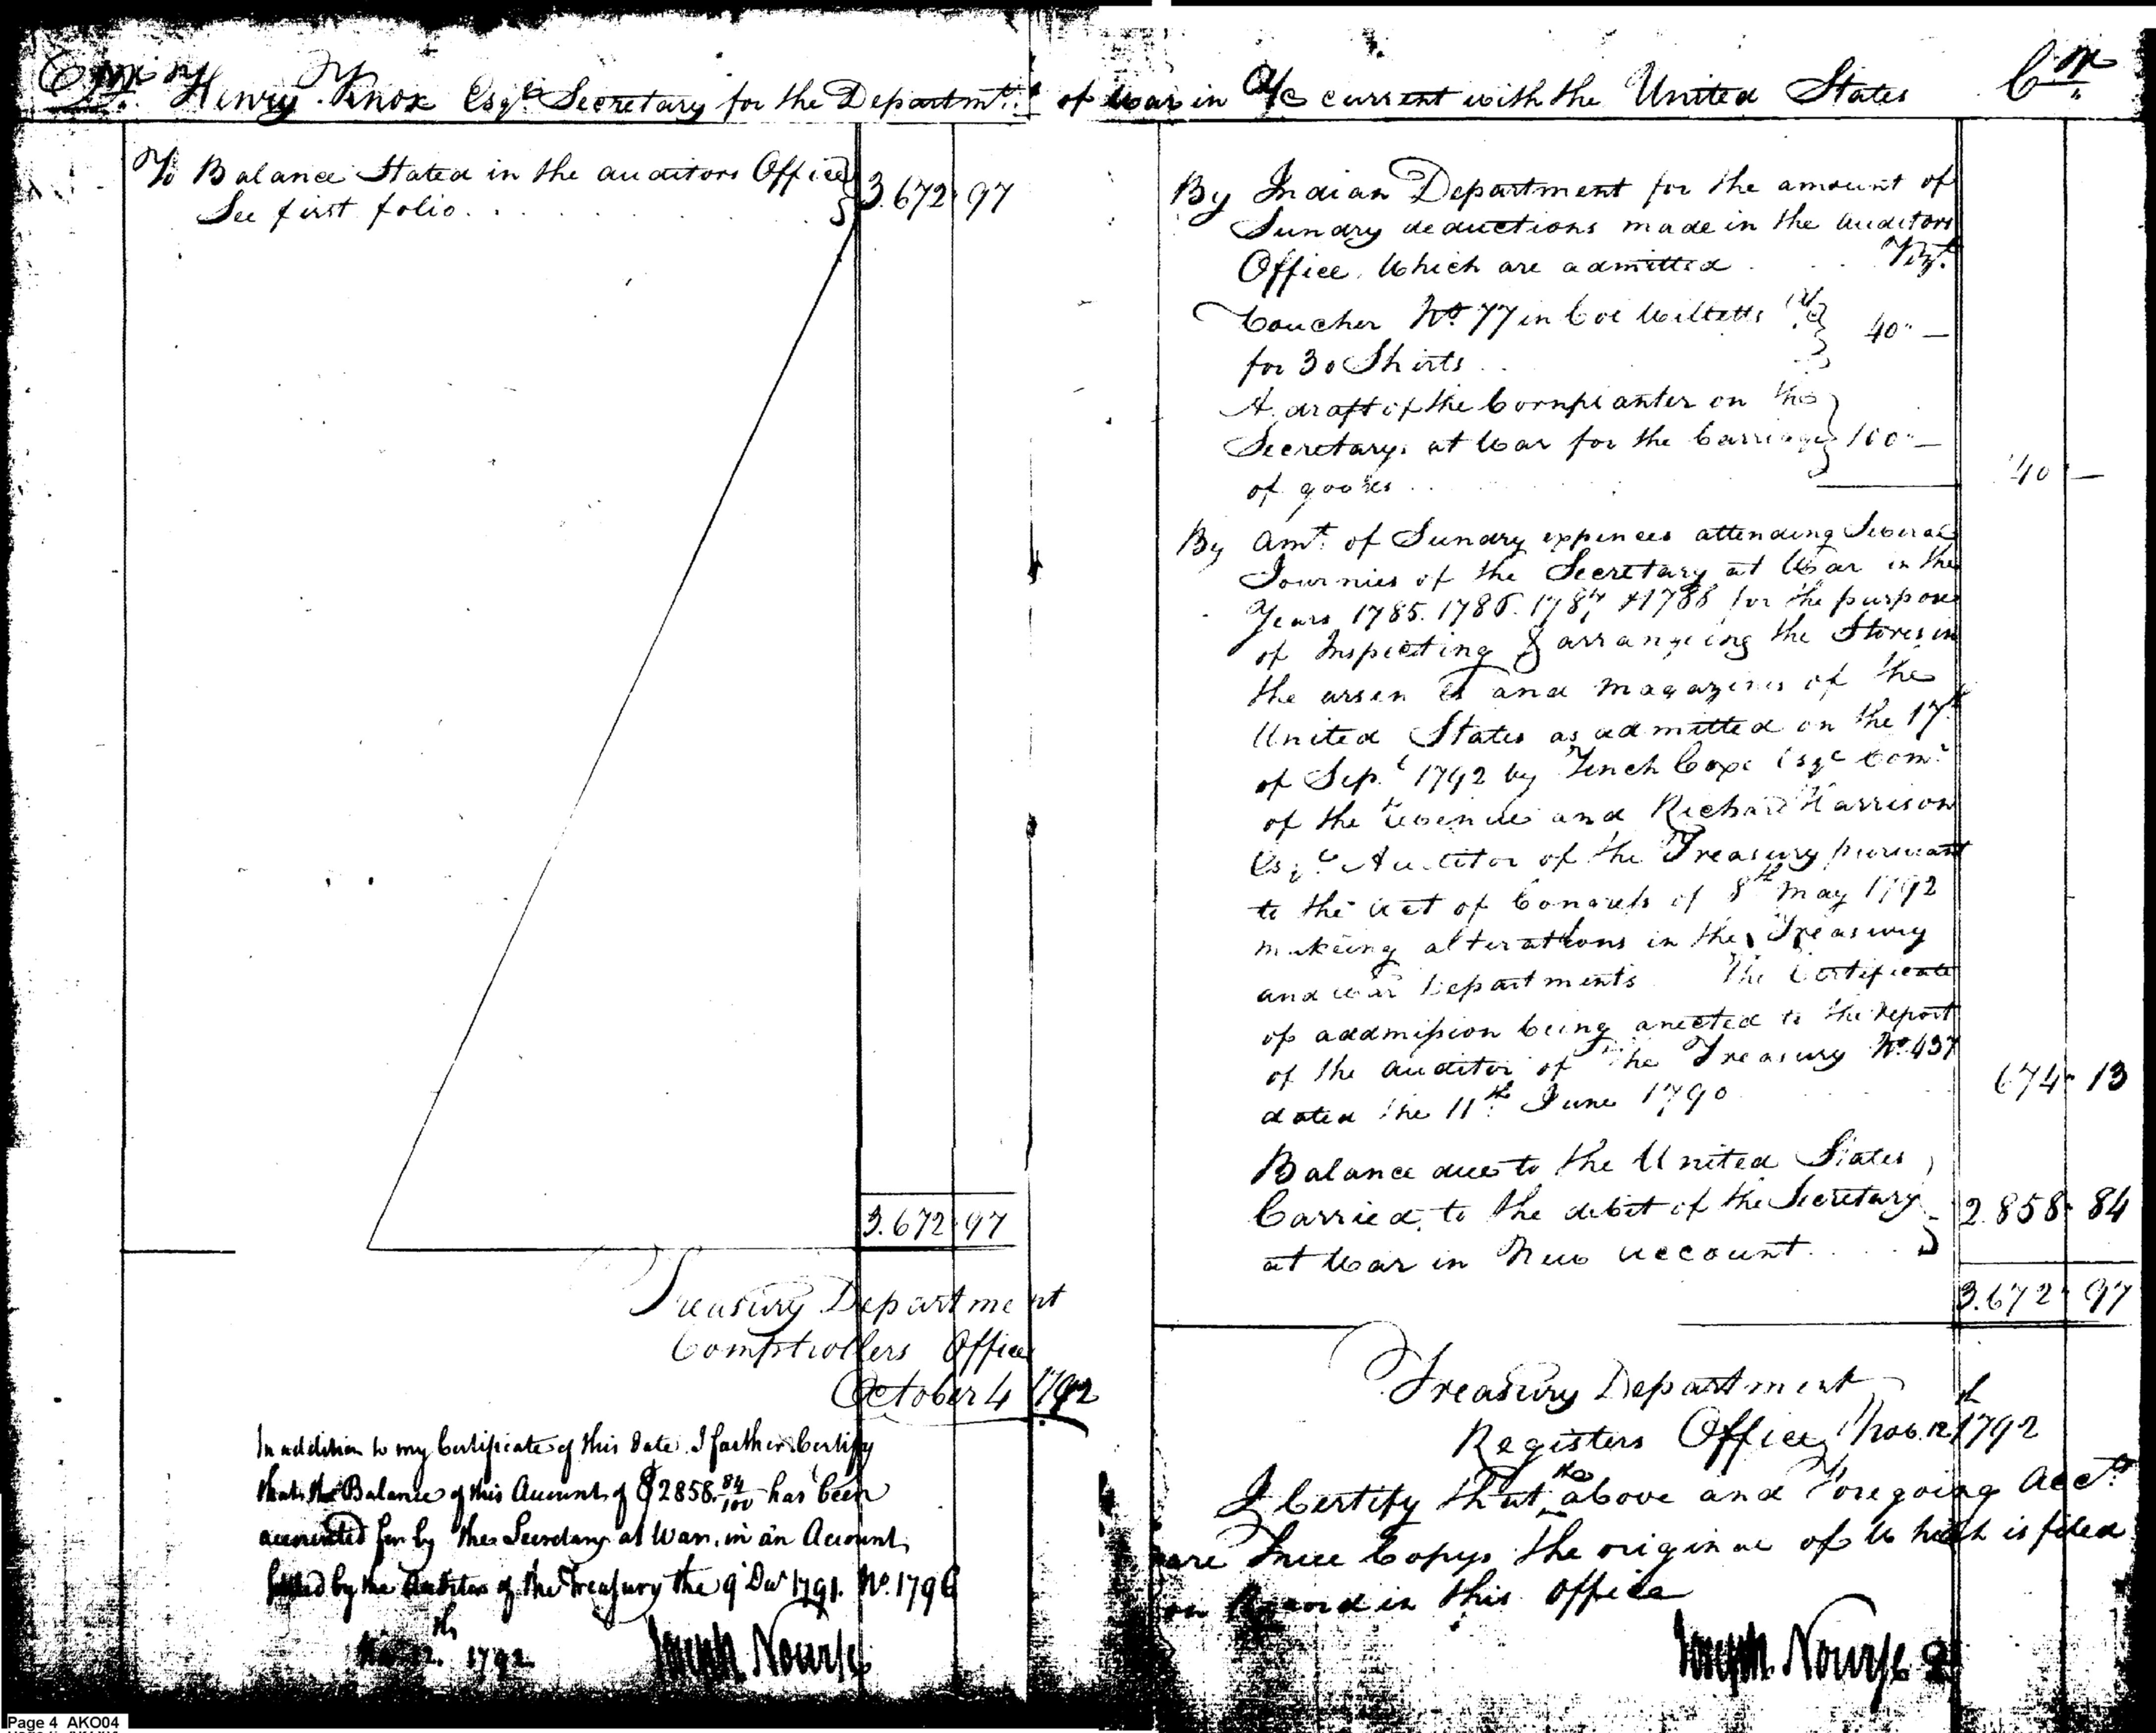 Henry Knox Esqr. Secretary for the Departmt. of War in a/c current with the United States Cr.
To Balance Stated in the auditors Office
See first folio . . . 3.672 97
3.672 97
Treasury Department
Comptrollers Office
October 4 1792
In addition to my Certificate of this date I farther Certify
that the Balance of this Account of $2858.84/100 has been
accounted for by the Secretary at War, in an Account
settled by the Auditor of the Treasury the 9 Decr 1791. No. 1796
12th. 1792 Joseph Nourse
By Indian Department for the amount of
Sundry deductions made in the auditors
Office, Which are admitted . . . Vizt.
Voucher No. 77 in Col Willetts
for 30 Shirts . . 40 —
A draft of the Cornplanter on the
Secretary at War for the Carriage 100 —
of goods . . .
140 —
By Amt. of Sundry expences attending Several
Journies of the Secretary at War in the
Years 1785. 1786. 1787 & 1788 for the purpose
of Inspecting & arrangeing the Stores in
the and magazines of the
United States as admitted on the 17th
of Sept. 1792 by Tench Coxe Esqr Comr.
of the Revenue and Richard Harrison
Esqr. Auditor of the Treasury pursuant
to the act of Congress of 8th May 1792
makeing alterations in the Treasury
and war Departments The Certificate
of addmission being anected to the report
of the auditor of the Treasury No. 437
dated the 11th. June 1790 674 13
Balance due to the United States
Carried to the debit of the Secretary 2.858 84
at War in New account . . .
3.672 97
Treasury Department
Registers Office Nov. 12th 1792
I Certify that the above and Foregoing Accts.
are True Copys the original of which is filed
on Record in this Office
Joseph Nourse
Page 4 AKO04